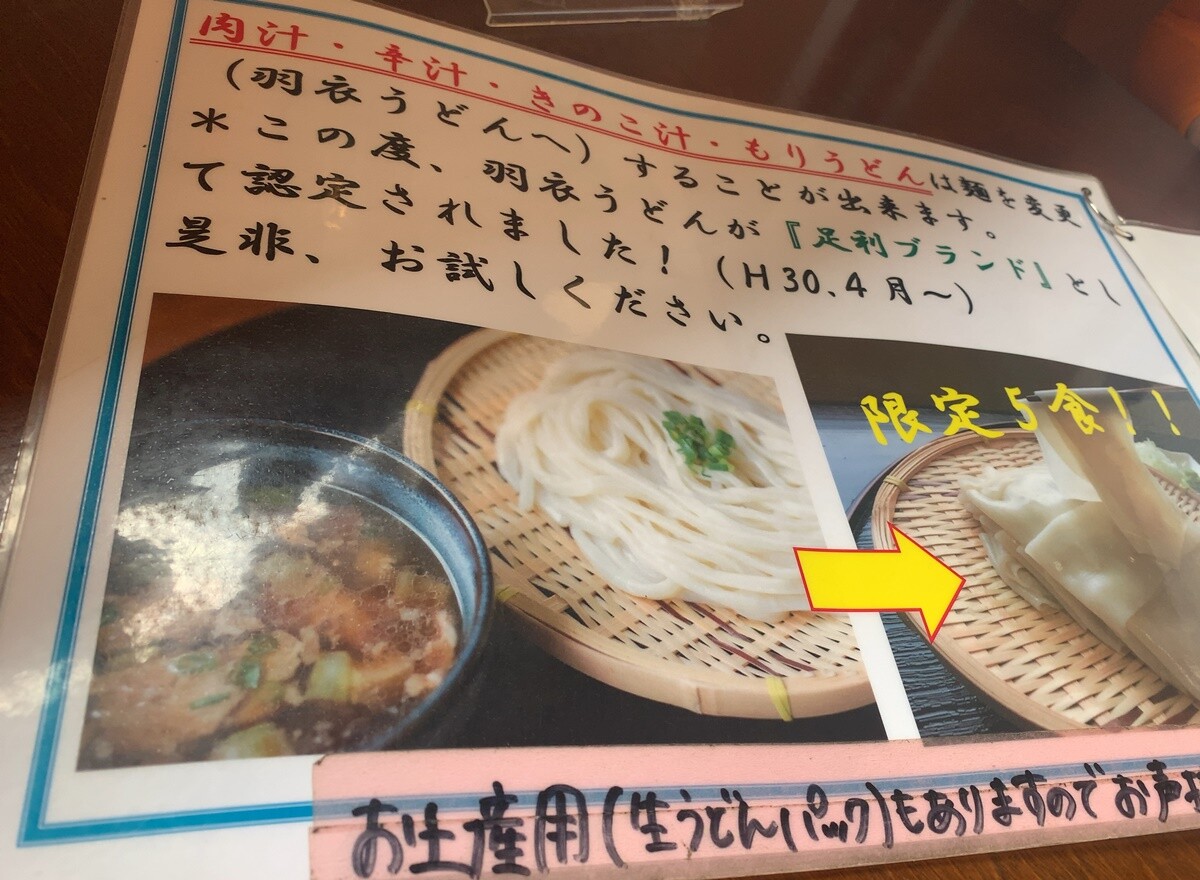 肉汁・辛汁・きのこ汁・もりうどんは麺を変更
(羽衣うどんへ)することが出来ます。
＊この度、羽衣うどんが『足利ブランド』とし
て認定されました！(H30.4月～)
是非、お試しください。
限定5食！！
お土産用(生うどんパック)もありますのでお声